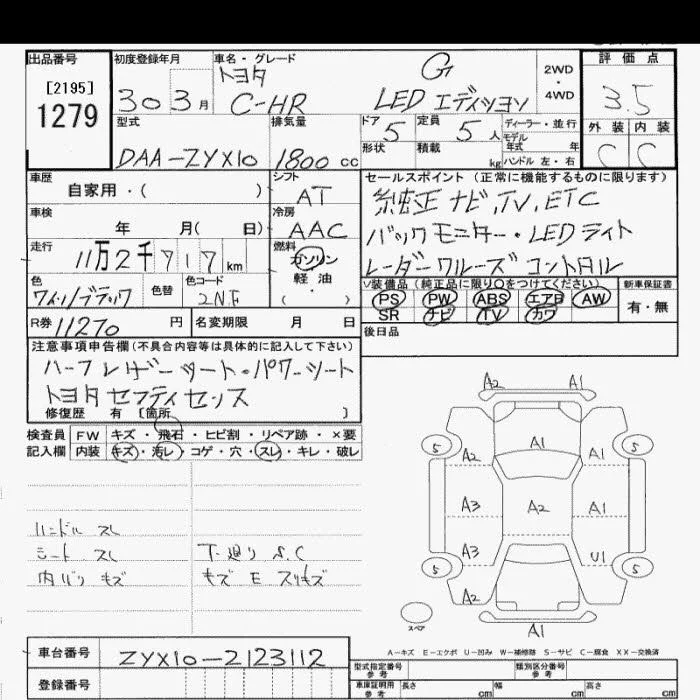 出品番号
[2195]
1279
初度登録年月
30 3月
車名・グレード
トヨタ G
C-HR LED エディション
2WD
・
4WD
評価点
3.5
外装 内装
C C
型式
DAA-ZYX10
排気量
1800 cc
ドア 5 定員 5人
ディーラー・並行
モデル
年式 年
形状 積載 kg ハンドル 左・右
車歴
自家用・( )
シフト
AT
車検
年 月( 日)
冷房
AAC
走行
11万2千717km
燃料
ガソリン
軽油
( ・ )
色 ワイン/ブラック 色替 色コード 2NF
R券 11270 円 名変期限 月 日
セールスポイント (正常に機能するものに限ります)
純正 ナビ,TV,ETC
バックモニター・LEDライト
レーダークルーズコントロル
装備品(純正品に限り○をつけてください) 新車保証書
PS PW ABS エアB AW 有・無
SR ナビ TV カワ
後日品
注意事項申告欄(不具合内容等は具体的に記入して下さい)
ハーフレザーシート・パワーシート
トヨタ セフティセンス
修復歴 有 〔箇所 〕
検査員 FW キズ・飛石・ヒビ割・リペア跡・×要
記入欄 内装 キズ・汚レ・コゲ・穴・スレ・キレ・破レ
ハンドル スレ
シート スレ 下廻り S.C
内バリ キズ キズ E スリキズ
A2 A1
5 A2 A1 5
A3 A2 A1
A3 U1
5 A2 5
スペア
A1
A-キズ E-エクボ U-凹み W-補修跡 S-サビ C-腐食 XX-交換済
車台番号 ZYX10-2123112
登録番号
型式指定番号
参考
類別区分番号
参考
車庫証明用
参考
長さ cm 幅 cm 高さ cm